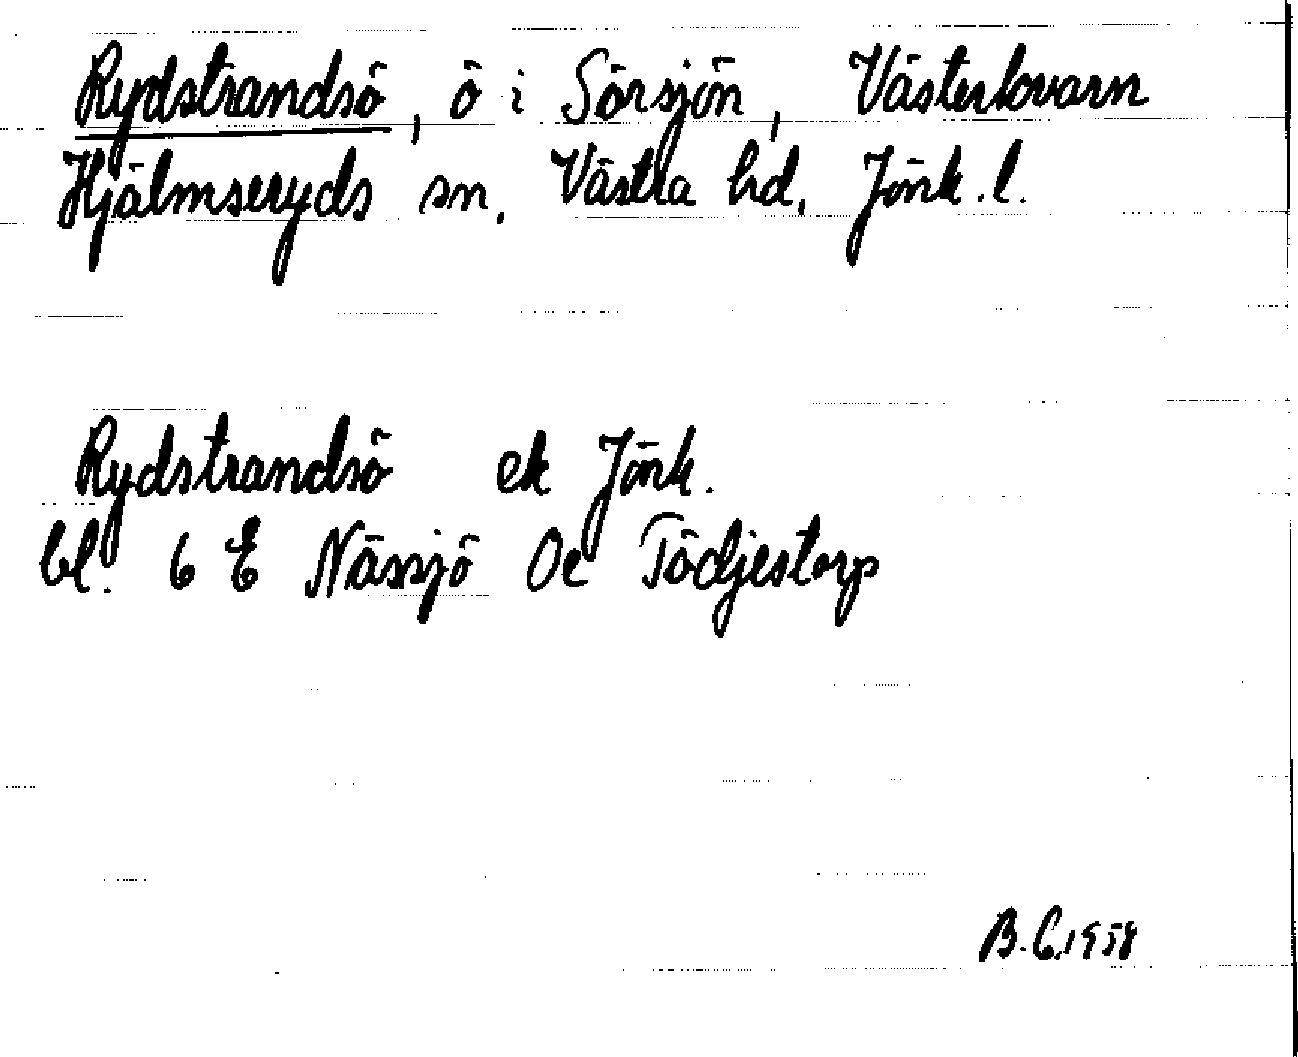 Rydstrandsö, ö i Sörsjön, Västerkvarn
Hjälmseryds sn. Västra hd. Jönk.l.
Rydstrandsö ek Jönk.
bl. 6 E Nässjö Oe Tödjestorp
B.C.1958